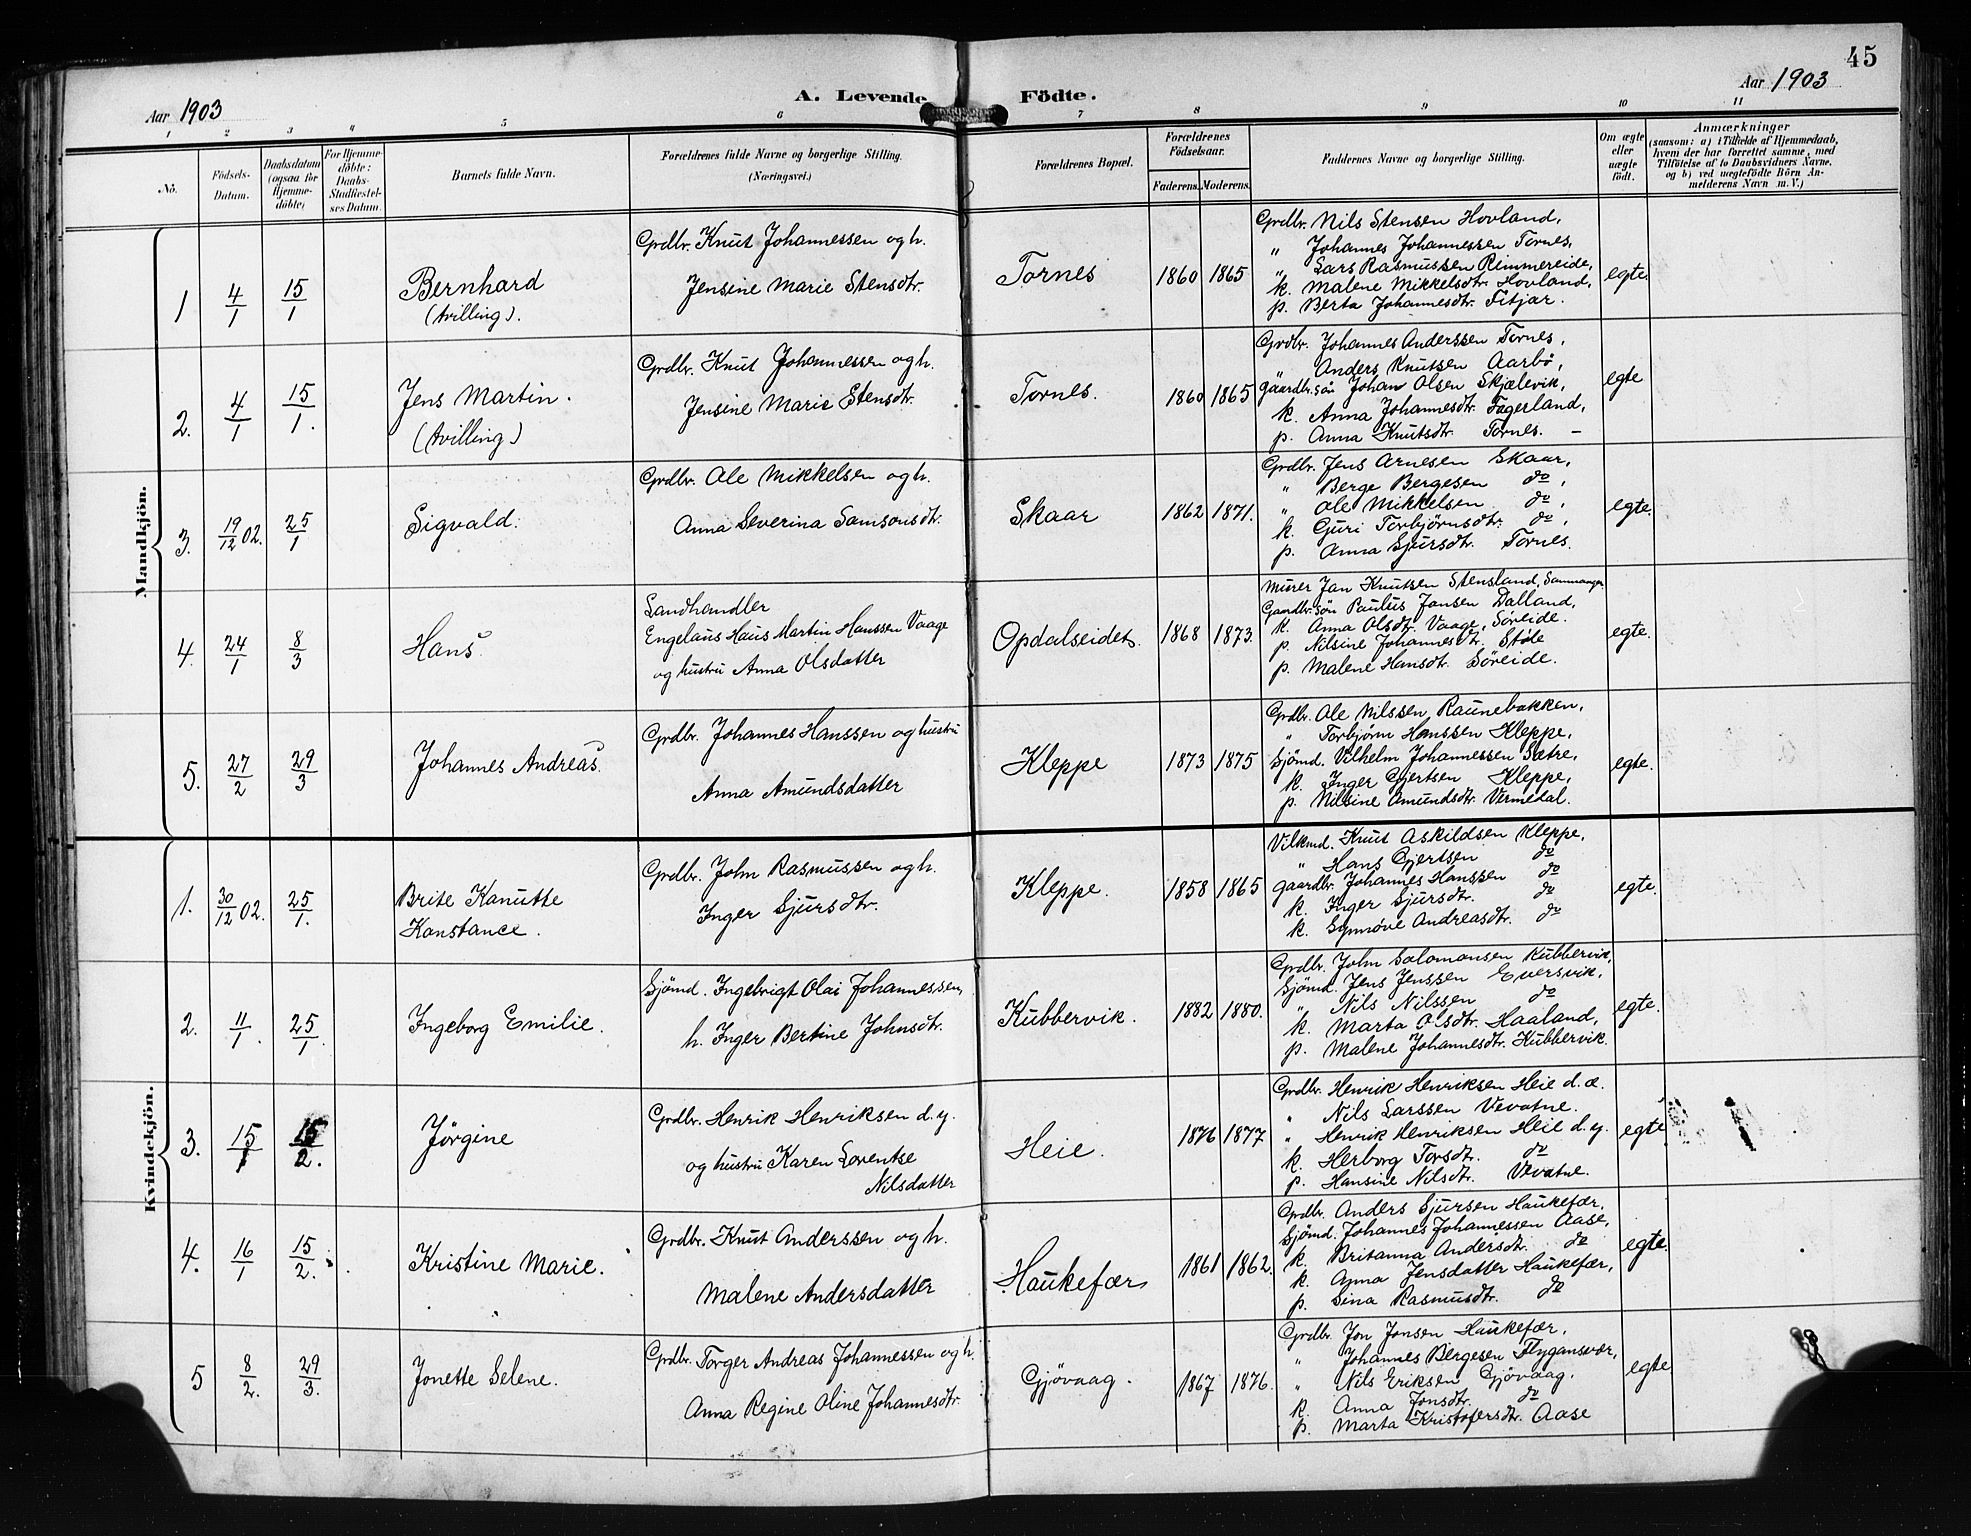 45
Aar 1903
A. Levende Födte.
Aar 1903
1 2 3 4 5 6 7 8 9 10 11
No.
Födsels-Datum.
Daabsdatum (ogsaa for Hjemme-döbte)
For Hjemme-döbte: Daabs-Stadfæstel-ses Datum.
Barnets fulde Navn.
Forældrenes fulde Navne og borgerlige Stilling.
(Næringsvei.)
Forældrenes Bopæl.
Forældrenes Födselsaar.
Faderens. Moderens.
Faddernes Navne og borgerlige Stilling.
Om ægte eller uægte födt.
Anmærkninger
(saasom: a) i Tilfælde af Hjemmedaab,
hvem der har forrettet samme, med
Tilföielse af to Daabsvidners Navne,
og b) ved uægtefödte Börn An-
melderens Navn m. V.)
Mandkjön.
1 4/1 15/1 Bernhard
(tvilling).
Grdbr. Knut Johannessen og h.
Jensine Marie Stensdtr.
Tornes 1860 1865
Grdbr. Nils Stensen Hovland,
" Johannes Johannessen Tornes,
" Lars Rasmussen Rimmereide,
k. Malene Mikkelsdtr. Hovland,
p. Berta Johannesdtr. Fitjar.
egte.
2. 4/1 15/1. Jens Martin.
(tvilling)
Grdbr. Knut Johannessen og h.
Jensine Marie Stensdtr.
Tornes. 1860 1865
Grdbr. Johannes Anderssen Tornes,
Anders Knutsen Aarbö,
Gaardbr.sön Johan Olsen Skjælevik,
k. Anna Johannesdtr. Fagerland,
p. Anna Knutsdtr. Tornes. –
egte
3. 19/12 02. 25/1 Sigvald.
Grdbr. Ole Mikkelsen og h.
Anna Severina Samsonsdtr.
Skaar 1862 1871.
Grdbr. Jens Arnesen Skaar,
" Berge Bergesen do,
" Ole Mikkelsen do,
k. Guri Torbjörnsdtr. do,
p. Anna Sjursdtr. Tornes.
egte.
4. 24/1 8/3 Hans.
Landhandler
Engelaus Haus Martin Hanssen Vaage
og hustru Anna Olsdatter
Opdalseidet. 1868 1873.
Murer Jan Knutsen Stensland, Sammanger
Gaardbr.sön Paulus Jansen Dalland,
k. Anna Olsdtr. Vaage, Söreide.
p. Nilsine Johannesdtr. Stöle
p. Malene Hansdtr. Söreide.
egte.
5. 27/2 29/3 Johannes Andreas.
Grdbr. Johannes Hanssen og hustru
Anna Amundsdatter
Kleppe 1873 1875
Grdbr. Ole Nilssen Raunebakken,
" Torbjörn Hanssen Kleppe,
Sjömd. Vilhelm Johannessen Sætre,
k. Inger Gjertsen Kleppe,
p. Nilsine Amundsdtr. Vermedal.
egte.
Kvindekjön.
1. 30/12 02. 25/1. Brite Kanutte
Konstance.
Grdbr. John Rasmussen og h.
Inger Sjursdtr.
Kleppe. 1858 1865
Vilkmd. Knut Askildsen Kleppe,
" Hans Gjertsen do
Gaardbr. Johannes Hanssen do
k. Inger Sjursdtr. do
k. Synnöve Andreasdtr. do
egte.
2. 11/1. 25/1. Ingeborg Emilie.
Sjömd. Ingebrigt Olai Johannessen,
h. Inger Bertine Johnsdtr.
Kubbervik. 1882 1880.
Grdbr. John Salomonsen Kubbervik,
Sjömd. Jens Jenssen Eversvik,
" Nils Nilssen do
k. Marta Olsdtr. Haaland,
p. Malene Johannesdtr. Kubbervik.
egte.
3. 15/1 15/2. Jörgine
Grdbr. Henrik Henriksen d. y.
og hustru Karen Lorentse
Nilsdatter
Heie. 1876 1877
Grdbr. Henrik Henriksen Heie d. æ.
" Nils Larssen Vevatne.
" Henrik Henriksen Heie d. y.
k. Herborg Torsdtr. do
p. Hansine Nilsdtr. Vevatne.
egte
4. 16/1 15/2. Kristine Marie.
Grdbr. Knut Anderssen og h.
Malene Andersdatter
Haukefær 1861 1862.
Grdbr. Anders Sjursen Haukefær,
Sjömd. Johannes Johannessen Aase,
k. Britanna Andersdtr. do
k. Anna Jensdatter Haukefær,
p. Sina Rasmusdtr. do
egte.
5 8/2. 29/3. Jonette Selene.
Grdbr. Torger Andreas Johannessen og h.
Anna Regine Oline Johannesdtr.
Gjövaag. 1867 1876.
Grdbr. Jon Jonsen Haukefær,
" Johannes Bergesen Flygansvær,
" Nils Eriksen Gjövaag.
k. Anna Jonsdtr. do
p. Marta Kristofersdtr. Aase
egte